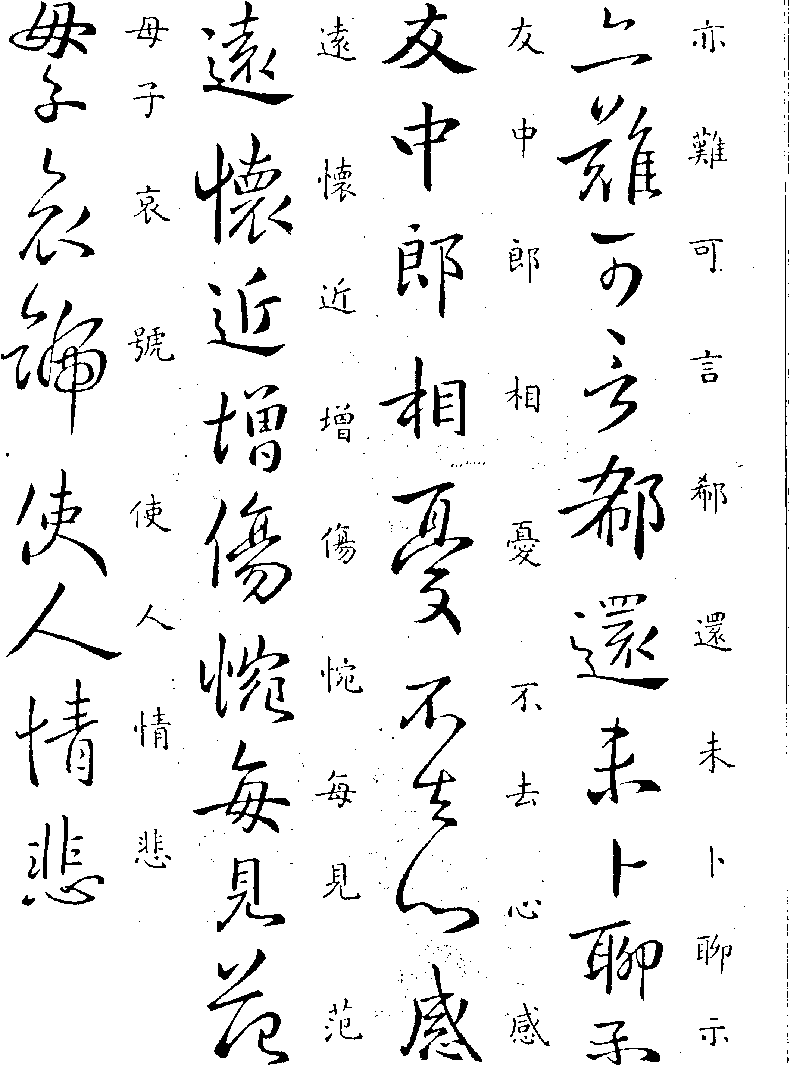 亦難可言郗還未卜聊示
亦難可言郗還未卜聊示
友中郎相憂不去心感
友中郎相憂不去心感
遠懷近增傷惋每見范
遠懷近增傷惋每見范
母子哀號使人情悲
母子哀號使人情悲